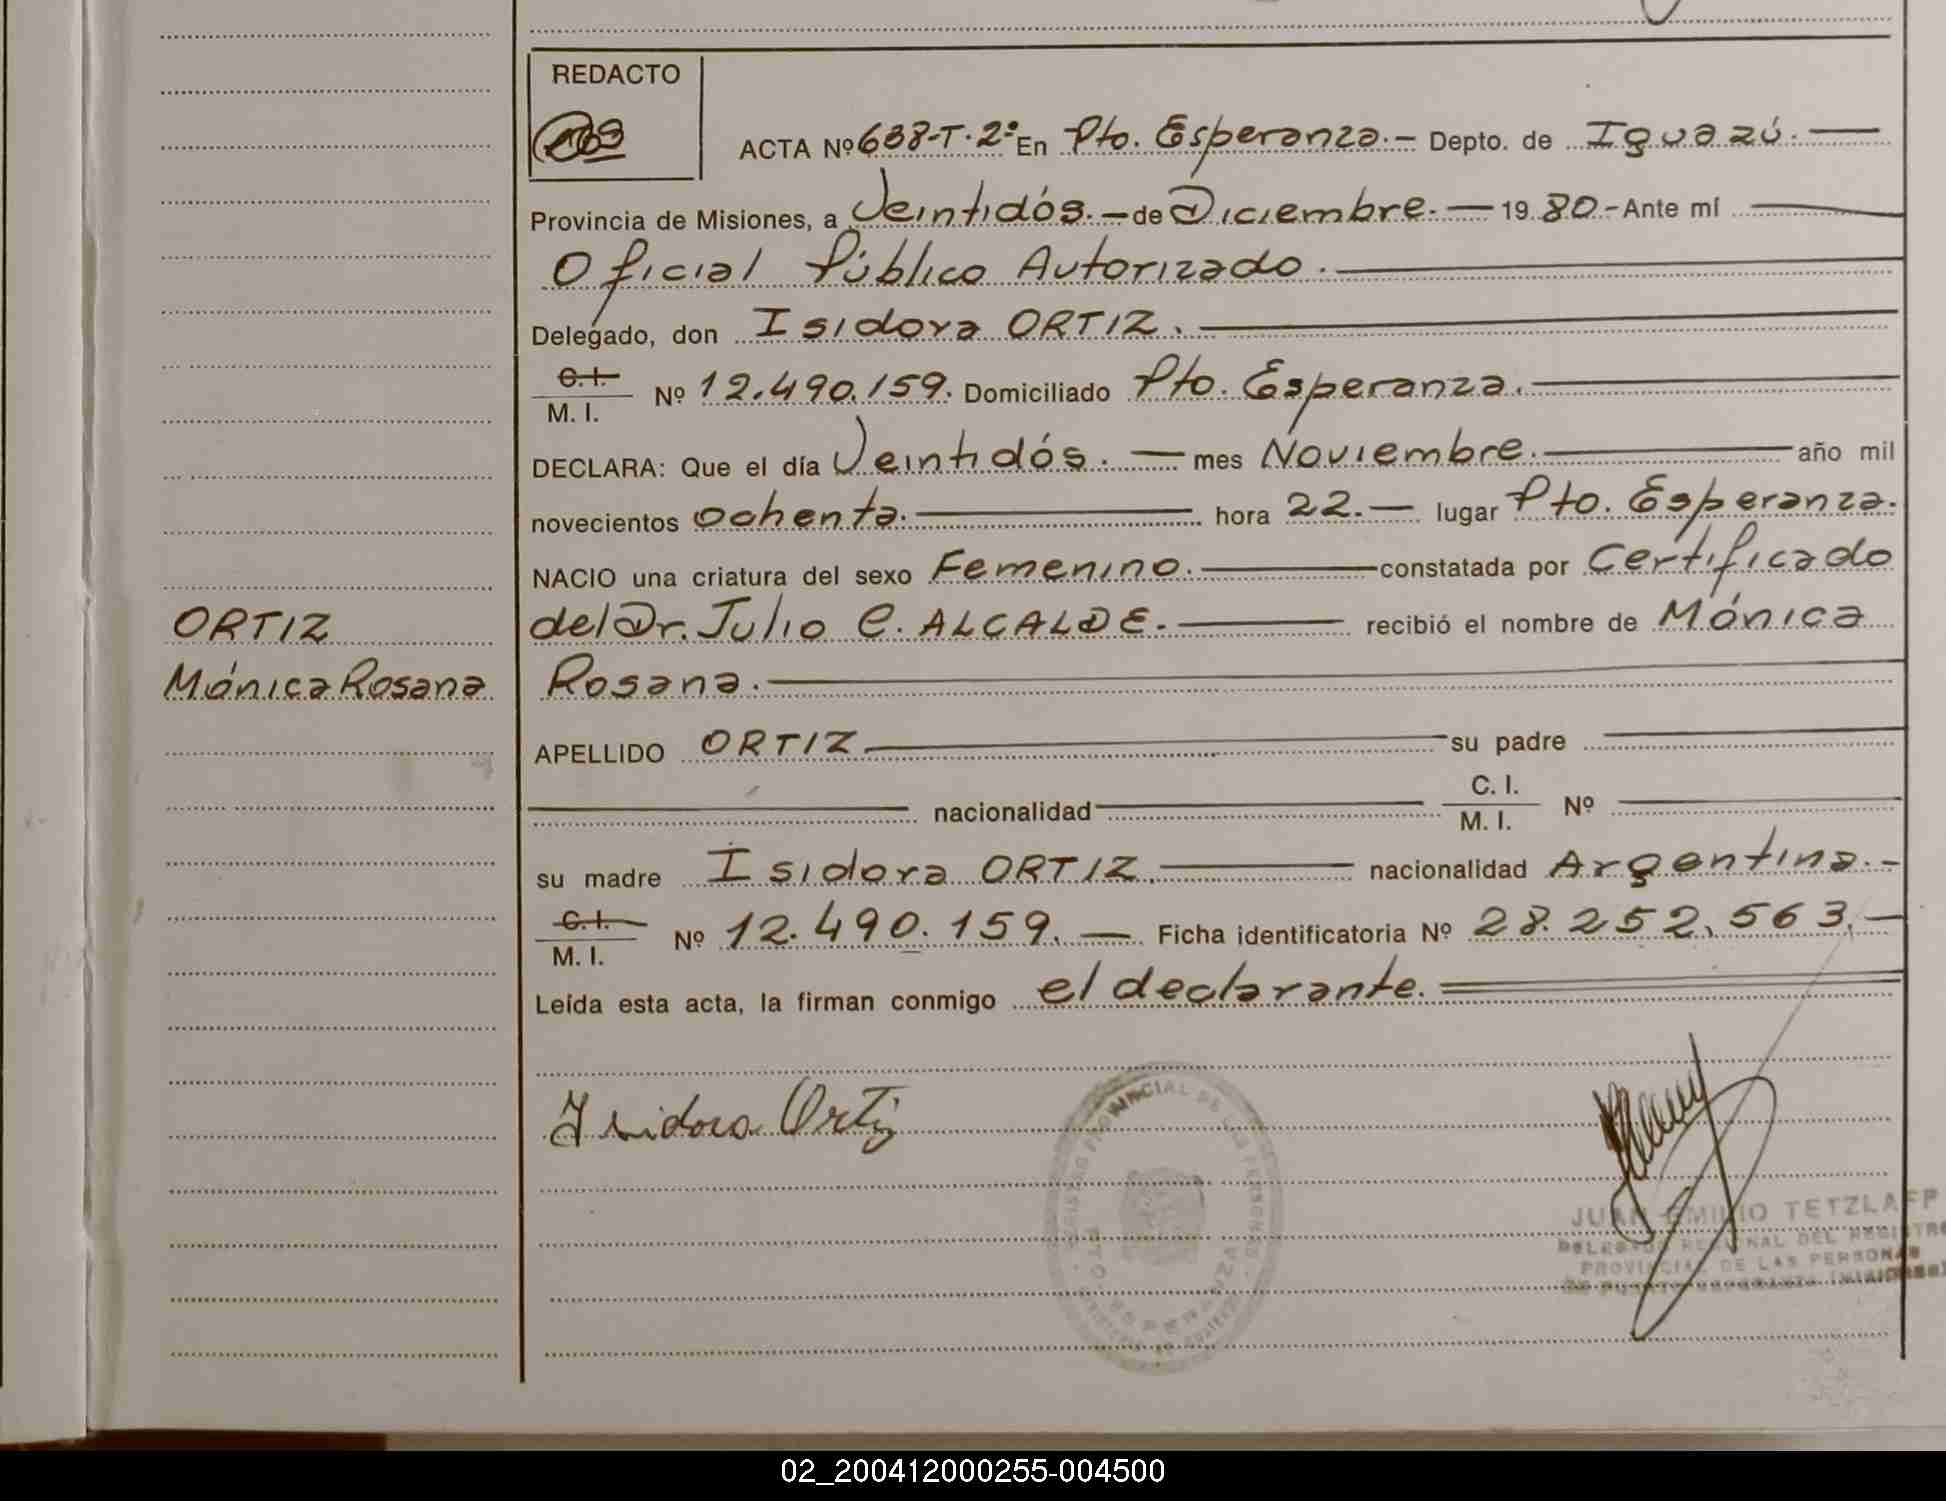 REDACTO
ACTA Nº 638-T·2º En Pto. Esperanza.- Depto. de Iguazú.
Provincia de Misiones, a Veintidós. de Diciembre. 1980.- Ante mí
Oficial Público Autorizado.
Delegado, don Isidora ORTIZ.
C.I. M. I. Nº 12.490.159. Domiciliado Pto. Esperanza.
DECLARA: Que el día Veintidós. mes Noviembre. año mil
novecientos ochenta. hora 22. lugar Pto. Esperanza.
NACIO una criatura del sexo Femenino. constatada por Certificado
ORTIZ
del Dr. Julio C. ALCALDE. recibió el nombre de Mónica
Mónica Rosana
Rosana.
APELLIDO ORTIZ su padre
nacionalidad C. I. M. I. Nº
su madre Isidora ORTIZ. nacionalidad Argentina.-
C.I. M. I. Nº 12.490.159. Ficha identificatoria Nº 28.252.563.
Leída esta acta, la firman conmigo el declarante.
Isidora Ortiz
JUAN EMILIO TETZLAFF
DELEGADO REGIONAL DEL REGISTRO
PROVINCIAL DE LAS PERSONAS
DE PUERTO ESPERANZA (MISIONES)
02_200412000255-004500